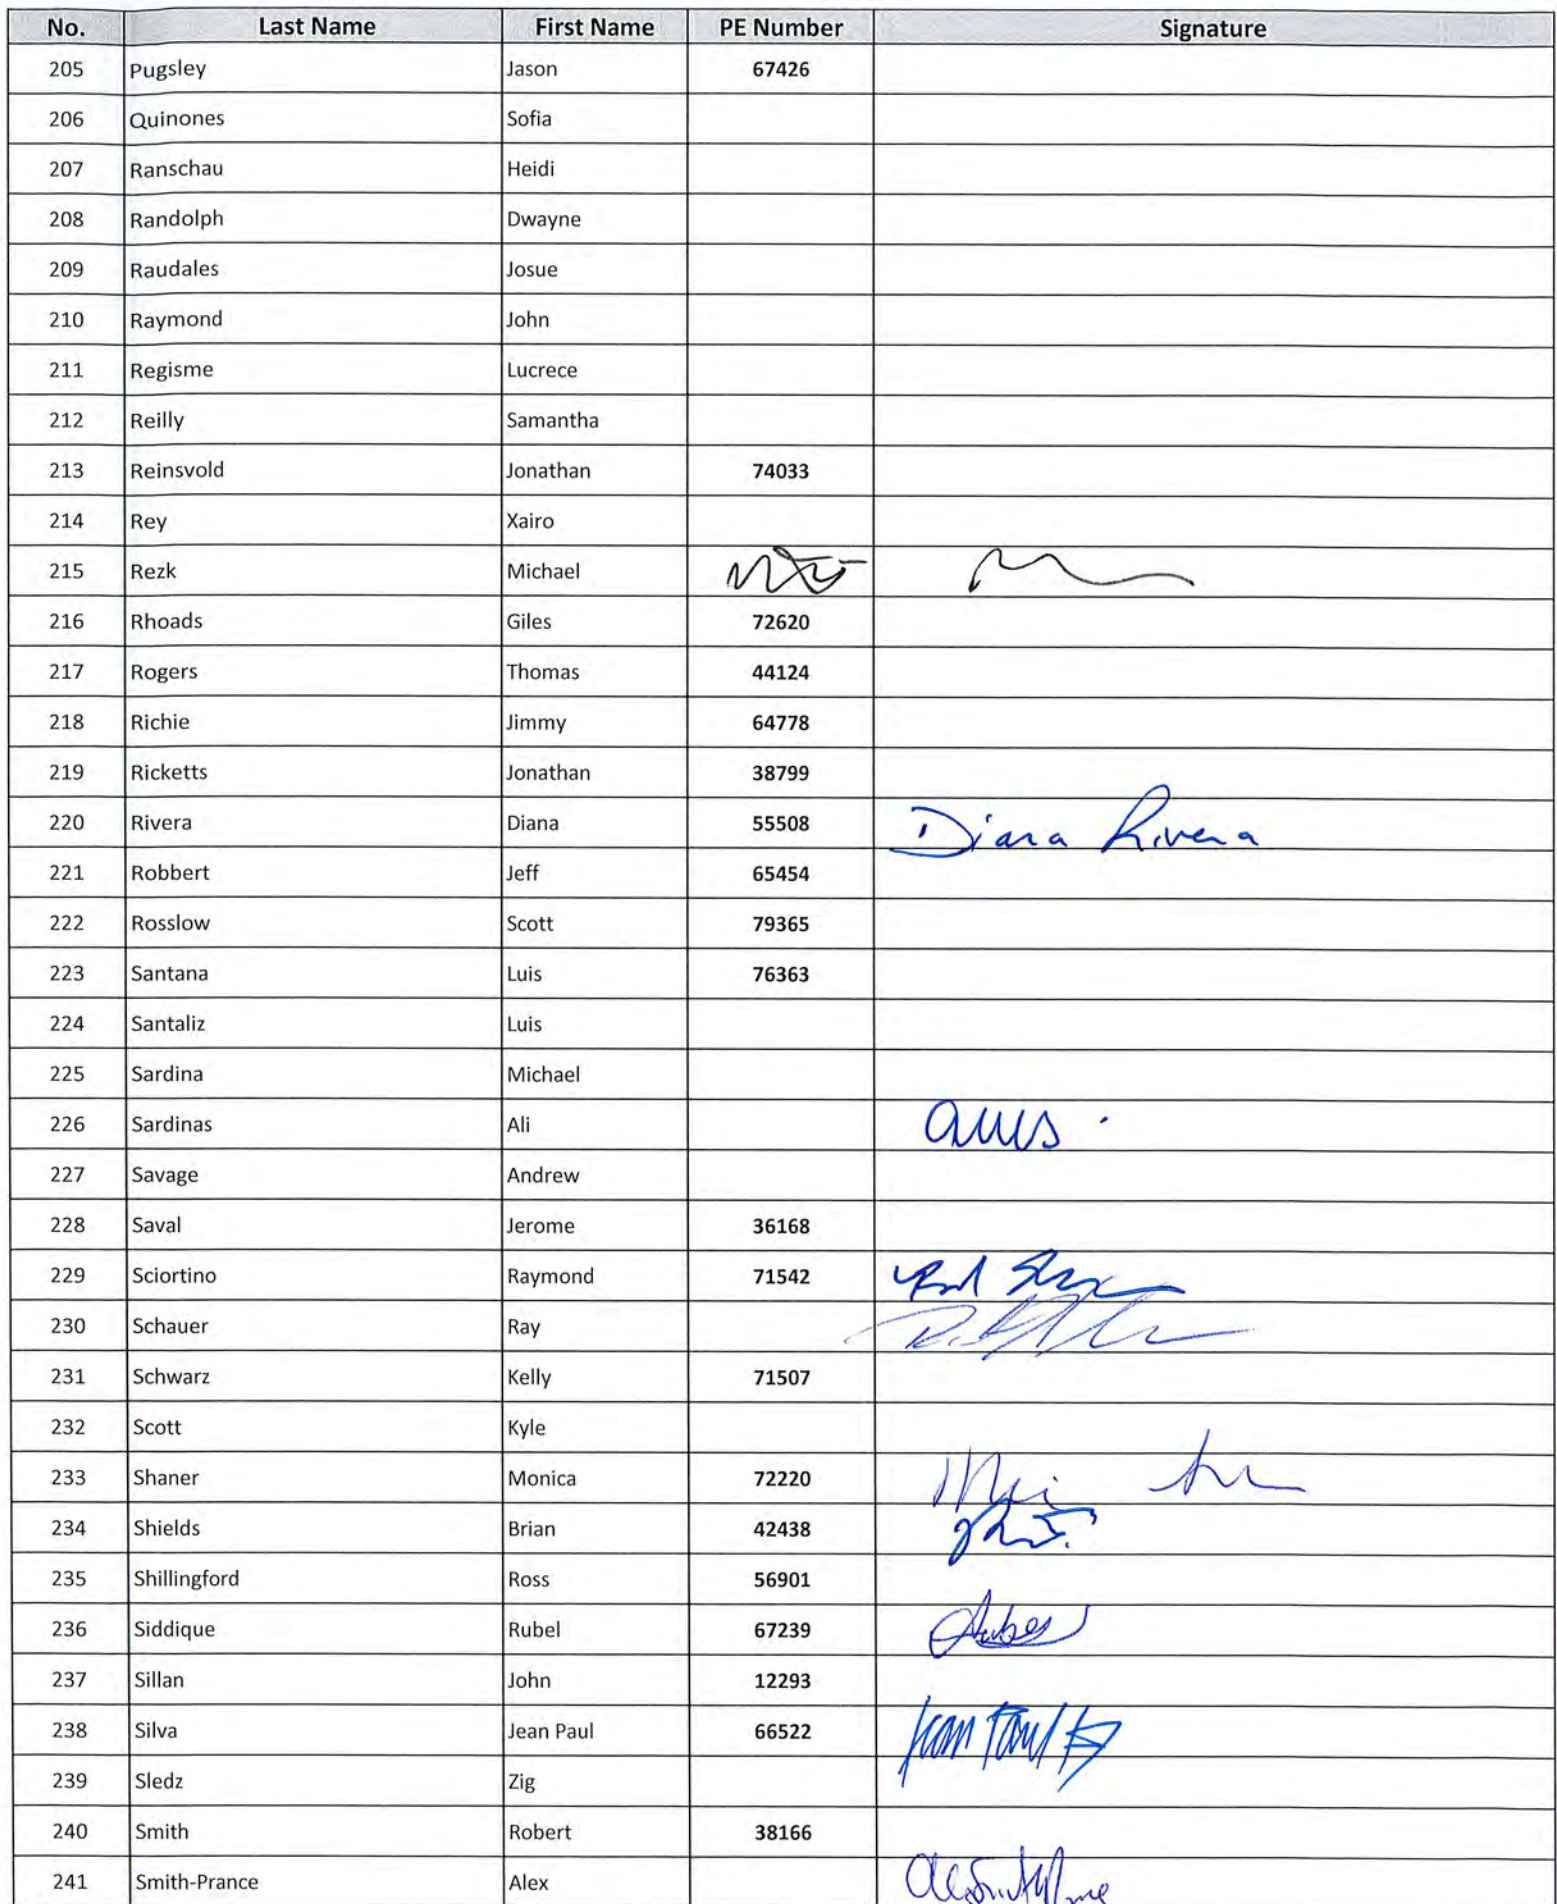 No. Last Name First Name PE Number Signature
205 Pugsley Jason 67426
206 Quinones Sofia
207 Ranschau Heidi
208 Randolph Dwayne
209 Raudales Josue
210 Raymond John
211 Regisme Lucrece
212 Reilly Samantha
213 Reinsvold Jonathan 74033
214 Rey Xairo
215 Rezk Michael
216 Rhoads Giles 72620
217 Rogers Thomas 44124
218 Richie Jimmy 64778
219 Ricketts Jonathan 38799
220 Rivera Diana 55508 Diana Rivera
221 Robbert Jeff 65454
222 Rosslow Scott 79365
223 Santana Luis 76363
224 Santaliz Luis
225 Sardina Michael
226 Sardinas Ali
227 Savage Andrew
228 Saval Jerome 36168
229 Sciortino Raymond 71542
230 Schauer Ray
231 Schwarz Kelly 71507
232 Scott Kyle
233 Shaner Monica 72220
234 Shields Brian 42438
235 Shillingford Ross 56901
236 Siddique Rubel 67239
237 Sillan John 12293
238 Silva Jean Paul 66522 Jean Paul
239 Sledz Zig
240 Smith Robert 38166
241 Smith-Prance Alex